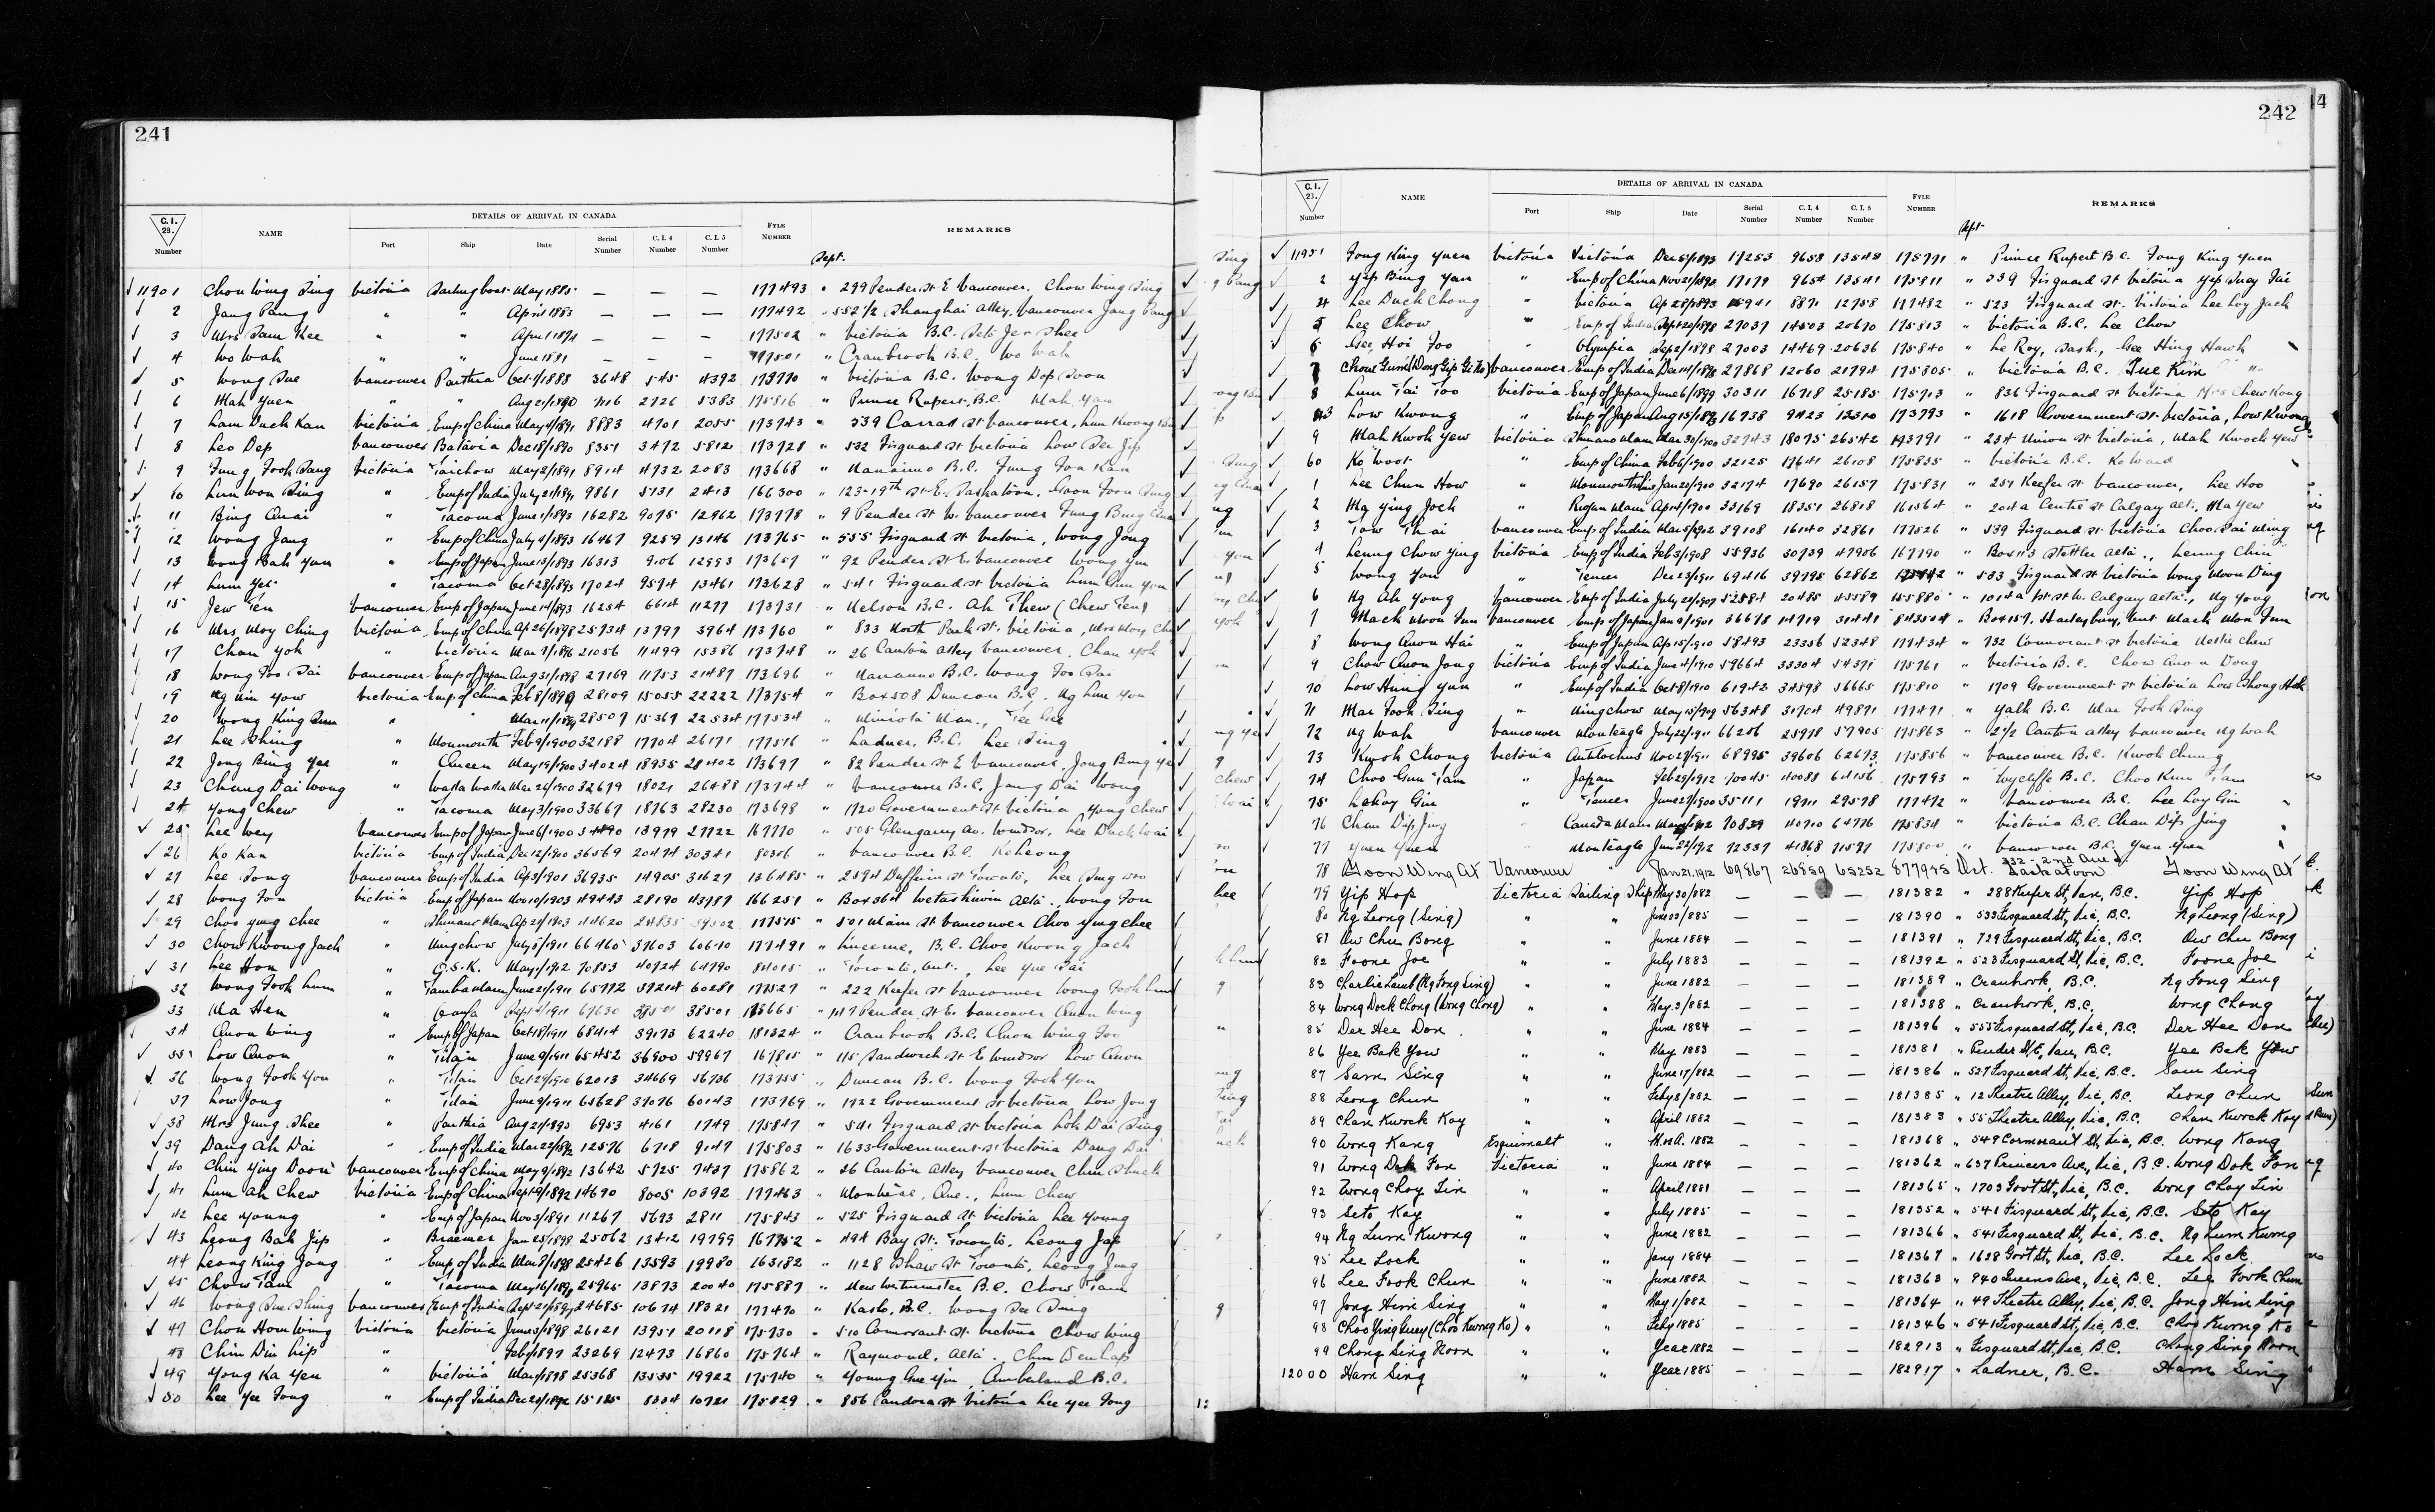 241
C.I. 28. Number NAME DETAILS OF ARRIVAL IN CANADA FYLE NUMBER REMARKS
Port Ship Date Serial Number C.I. 4 Number C.I. 5 Number
Sept.
11901 Chou Wing Sing Victoria Sailing boat May 1885 — — — 177493 " 299 Pender St E Vancouver. Chow Wing Sing
2 Jang Pang " " April 1883 — — — 177492 " 552 1/2, Shanghai Alley, Vancouver Jang Pang
3 Mrs Sam Kee " " April 1874 — — — 177502 " Victoria B.C. Seto Jer Shee
4 Wo Wah " " June 1881 — — — 177501 " Cranbrook B.C. Wo Wah
5 Wong Sue Vancouver Parthia Oct 7/1888 3648 545 4392 173770 " Victoria B.C. Wong Dop Soon
6 Mah Yuen " " Aug 21/1890 7116 2726 5383 175816 " Prince Rupert, B.C. Mah Yan
7 Lam Duck Kan Victoria Emp of China May 4/1891 8883 4701 2055 173743 " 539 Carrall St Vancouver, Lum Kwong
8 Leo Dep Vancouver Batavia Dec 18/1890 8351 3472 5812 173728 " 532 Fisguard St Victoria Low Der Jip
9 Fung Fook Sang Victoria Taichow May 2/1891 8914 4732 2083 173668 " Nanaimo B.C. Fung Fon Kan
10 Lum Won Sing " Emp of India July 21/1891 9861 5131 2413 166300 " 123-19th St E. Saskatoon. Goon Foon Sing
11 Bing Quai " Tacoma June 1/1893 16282 9075 12962 173778 " 9 Pender St W. Vancouver Fung Bing Quai
12 Wong Jang " Emp of China July 4/1893 16467 9259 13146 173765 " 555 Fisguard St Victoria, Wong Jong
13 Wong Bah Yun " Emp of Japan June 13/1893 16313 9106 12993 173657 " 92 Pender St E Vancouver Wong Yun
14 Lum Yet " Tacoma Oct 28/1893 17024 9574 13461 173628 " 541 Fisguard St Victoria Lum Gim You
15 Jew Ten Vancouver Emp of Japan June 14/1893 16254 6614 11277 173731 " Nelson B.C. Ah Thew (Chew Ten)
16 Mrs. Moy Ching Victoria Emp of China Ap 26/1898 25734 13797 3964 173760 " 833 North Park St. Victoria, Mrs Moy
17 Chan Yok " Victoria Mar 7/1896 21056 11499 15386 173748 " 26 Canton Alley Vancouver, Chan Yok
18 Wong Foo Sai Vancouver Emp of Japan Aug 31/1898 27169 11753 21487 173696 " Nanaimo B.C. Wong Foo Sai
19 Ng Win Yow Victoria Emp of China Feb 8/1899 28109 15055 22222 173754 " Box 508 Duncan B.C. Ng Lum You
20 Wong King Sum " " Mar 11/1899 28507 15367 22534 177534 " Miniota Man., Tee Lee
21 Lee Shing " Monmouth Feb 9/1900 32188 17704 26171 177516 " Ladner, B.C. Lee Sing
22 Jong Bing Yee " Queen May 19/1900 34024 18935 28402 173697 " 82 Pender St E Vancouver, Jong Bing Yee
23 Chung Dai Wong " Walla Walla Mar 26/1900 32679 18021 26488 173744 " Vancouver B.C. Jang Dai Wong
24 Yong Chew " Tacoma May 3/1900 33667 18763 28230 173698 " 1720 Government St Victoria Yong Chew
25 Lee Wey Vancouver Emp of Japan June 6/1900 13979 27722 167770 " 505 Glengarry Av. Windsor, Lee Duck Wai
26 Ko Kan Victoria Emp of India Dec 12/1900 36569 20474 30341 80306 " Vancouver B.C. Ko Leong
27 Lee Song Vancouver Emp of India Ap 3/1901 36935 14905 31627 136485 " 259A Dufferin St Toronto, Lee Sing
28 Wong Fon Victoria Emp of Japan Nov 10/1903 49443 28190 43787 166251 " Box 364 Wetaskiwin Alta., Wong Fon
29 Choo Yung Chee " Shinano Maru Ap 20/1903 44620 177515 " 501 Main St Vancouver Choo Yung Chee
30 Chow Kwong Jack " Ningchow July 5/1911 66465 37603 60610 177491 " Lucerne, B.C. Choo Kwong Jack
31 Lee Hon " O.S.K. May 1/1912 70853 40724 64790 84015 " Toronto, Ont., Lee Yue Sai
32 Wong Fook Lum " Tamba Maru June 21/1911 65772 37214 60281 177527 " 222 Keefer St Vancouver Wong Fook Lum
33 Ma Hen " Oanfa Sept 4/1911 67630 38501 173665 " 147 Pender St E Vancouver Quon Wing
34 Quon Wing " Emp of Japan Oct 18/1911 68414 39173 62240 181324 " Cranbrook B.C. Quon Wing Foo
35 Low Quon " Titan June 9/1911 65452 36900 59967 167815 " 115 Sandwich St E Windsor Low Quon
36 Wong Fook You " Titan Oct 29/1910 62013 34669 56736 173755 " Duncan B.C. Wong Fook You
37 Low Jong " Titan June 9/1911 65628 37076 60143 173769 " 1722 Government St Victoria Low Jong
38 Mrs Jung Shee " Parthia Aug 21/1890 6953 4161 1749 175847 " 541 Fisguard St Victoria Lok Dai Sing
39 Dang Ah Dai " Emp of India Mar 22/1892 12576 6718 9147 175803 " 1633 Government St Victoria Dang Dai
40 Chin Ying Doon Vancouver Emp of China May 9/1892 13642 5725 7437 175862 " 26 Canton Alley Vancouver Chin Shuck
41 Lum Ah Chew Victoria Emp of China Sept 9/1892 14690 8005 10392 177463 " Montreal, Que., Lum Chew
42 Lee Young " Emp of Japan Nov 3/1891 11267 5693 2811 175843 " 525 Fisguard St Victoria Lee Young
43 Leong Bak Jip " Braemer Jan 25/1898 25062 13412 19799 167752 " 494 Bay St. Toronto. Leong Jap
44 Leong King Jong " Emp of India Mar 8/1898 25426 13593 19980 163182 " 1128 Shaw St Toronto, Leong Jung
45 Chow Tam " Tacoma May 16/1898 25965 13873 20040 175887 " New Westminster B.C. Chow Tam
46 Wong Sue Shing Vancouver Emp of India Sept 21/1897 24685 10674 18321 177470 " Kaslo, B.C. Wong See Sung
47 Chou Hom Wing Victoria Victoria June 3/1898 26121 13951 20118 175730 " 510 Cormorant St Victoria Chow Wing
48 Chin Din Lip " Feb 1897 23269 12473 16860 175764 " Raymond, Alta. Chin Den Lap
49 Yong Ka Yen " Victoria May 1898 25368 13535 19922 175740 " Young Gue Yin, Cumberland B.C.
50 Lee Yee Fong " Emp of India Dec 20/1892 15185 8334 10721 175829 " 856 Pandora St Victoria Lee Yee Fong
242
C.I. 28. Number NAME DETAILS OF ARRIVAL IN CANADA FYLE NUMBER REMARKS
Port Ship Date Serial Number C.I. 4 Number C.I. 5 Number
Sept.
11951 Fong King Yuen Victoria Victoria Dec 5/1893 17253 9658 13545 175771 " Prince Rupert B.C. Fong King Yuen
2 Yip Bing Yan " Emp of China Nov 21/1893 17179 9654 13541 175811 " 339 Fisguard St Victoria Yip Suey Tai
4 Lee Duck Chong " Victoria Ap 28/1893 15941 8871 12758 177482 " 523 Fisguard St. Victoria Lee Loy Jack
5 Lee Chow " Emp of India Sept 20/1898 27037 14503 20670 175813 " Victoria B.C. Lee Chow
6 Gee Hoi Foo " Olympia Sep 2/1898 27003 14469 20636 175840 " Le Roy, Sask., Gee Hing Hawk
7 Chow Gum (Dong Gip Gi Ko) Vancouver Emp of India Dec 14/1898 27868 12060 21794 175805 " Victoria B.C. Sue Kim
8 Lum Tai Too Victoria Emp of Japan June 6/1899 30311 16718 25185 175713 " 836 Fisguard St Victoria Mrs Chew Kong
3 Low Kwong " Emp of Japan Aug 15/1893 16738 9423 13310 173793 " 1618 Government St. Victoria, Low Kwong
9 Mah Kwok Yew Victoria Shinano Maru Mar 30/1900 32743 18075 26542 173791 " 234 Union St Victoria, Mah Kwock Yew
60 Ko Woot " Emp of China Feb 6/1900 32125 17641 26108 175835 " Victoria B.C. Ko Ward
1 Lee Chun How " Monmouthshire Jan 20/1900 32174 17690 26157 175831 " 257 Keefer St Vancouver, Lee Hoo
2 Ma Ying Jock " Riojun Maru Apr 4/1900 33169 18351 26818 161564 " 204a Centre St Calgary Alt., Ma Yew
3 Tow Thai Vancouver Emp of India Mar 5/1902 39108 16140 32861 177526 " 539 Fisguard St Victoria Choo Sai Ming
4 Leung Chow Ying Victoria Emp of India Feb 3/1908 55936 30739 47906 167190 " Box 113 Stettler Alta., Leung Chin
5 Wong You " Teucer Dec 23/1911 69416 39795 62862 175842 " 533 Fisguard St Victoria Wong Moon Ding
6 Ng Ah Yong Vancouver Emp of India July 23/1907 52584 20485 45589 155880 " 1014a 1st St W. Calgary Alta., Ng Yong
7 Mach Mon Fun Vancouver Emp of Japan Jan 9/1901 36678 14719 31441 843504 " Box 157, Haileybury, Ont Mach Mon Fun
8 Wong Quon Hai " Emp of Japan Ap 15/1910 58493 23356 52348 177434 " 732 Cormorant St Victoria Chew
9 Chow Quon Jong Victoria Emp of India June 4/1910 59664 33304 54371 175761 " Victoria B.C. Chow Quon Dong
70 Low Hing Yun " Emp of India Oct 8/1910 61942 34598 56665 175810 " 1709 Government St Victoria Low Shong Hok
71 Mar Fook Sing " Ningchow May 15/1909 56348 31704 49871 177471 " Yalk B.C. Mar Fook Sing
72 Ng Wah Vancouver Monteagle July 22/1911 66206 25978 57905 175863 " 2 1/2 Canton Alley Vancouver Ng Wah
73 Kwok Chong Victoria Antilochus Nov 27/1911 68995 39606 62673 175856 " Vancouver B.C. Kwok Chung
74 Choo Gun Tam " Japan Feb 29/1912 70045 40088 64156 175793 " Wycliffe B.C. Choo Kum Tam
75 Lee Loy Gin " Teucer June 27/1900 35111 19711 29578 177472 " Vancouver B.C. Lee Loy Gin
76 Chan Dip Jing " Canada Maru May 1912 70839 40710 64776 175834 " Victoria B.C. Chan Dip Jing
77 Yuen Yuen " Monteagle Jun 22/1912 72337 41868 71571 175800 " Vancouver B.C. Yuen Yuen
78 Goon Wing At Vancouver " Jan 21, 1912 69867 26859 65252 877985 Oct. 332 - 2nd Ave N Saskatoon Goon Wing At
79 Yip Hop Victoria Sailing Ship May 30/1882 — — — 181382 " 288 Keefer St, Van, B.C. Yip Hop
80 Ng Leong (Sing) " " June 23/1885 — — — 181390 " 533 Fisguard St, Vic, B.C. Ng Leong (Sing)
81 Ow Chu Bong " " June 1884 — — — 181391 " 729 Fisguard St, Vic, B.C. Ow Chu Bong
82 Foone Joe " " July 1883 — — — 181392 " 523 Fisguard St, Vic, B.C. Foone Joe
83 Charlie Lunt (Ng Fong Sing) " " June 1882 — — — 181389 " Cranbrook, B.C. Ng Fong Sing
84 Wong Dock Chong (Wong Chong) " " May 3/1882 — — — 181388 " Cranbrook, B.C. Wong Chong
85 Der Hee Don " " June 1884 — — — 181396 " 555 Fisguard St, Vic, B.C. Der Hee Don
86 Yee Bak Yow " " May 1883 — — — 181381 " Pender St E, Van, B.C. Yee Bak Yow
87 Sam Sing " " June 17/1882 — — — 181386 " 527 Fisguard St, Vic, B.C. Sam Sing
88 Leong Chun " " Feby 8/1882 — — — 181385 " 12 Theatre Alley, Vic, B.C. Leong Chun
89 Chan Kwock Kay " " April 1882 — — — 181383 " 55 Theatre Alley, Vic, B.C. Chan Kwock Kay
90 Wong Kang Esquimalt " Mar. 1882 — — — 181368 " 549 Cormorant St, Vic, B.C. Wong Kang
91 Wong Dok Fon Victoria " June 1884 — — — 181362 " 637 Princess Ave, Vic, B.C. Wong Dok Fon
92 Wong Choy Lin " " April 1881 — — — 181365 " 1703 Govt St, Vic, B.C. Wong Choy Lin
93 Seto Kay " " July 1885 — — — 181352 " 541 Fisguard St, Vic, B.C. Seto Kay
94 Ng Lum Kwong " " June 1882 — — — 181366 " 541 Fisguard St, Vic, B.C. Ng Lum Kwong
95 Lee Lock " " Jany 1884 — — — 181367 " 1628 Govt St, Vic, B.C. Lee Lock
96 Lee Fook Chun " " June 1882 — — — 181363 " 940 Queens Ave, Vic, B.C. Lee Fook Chun
97 Jong Him Sing " " May 1/1882 — — — 181364 " 49 Theatre Alley, Vic, B.C. Jong Him Sing
98 Choo Ying Quey (Choo Kwong Ko) " " Feby 1885 — — — 181346 " 541 Fisguard St, Vic, B.C. Choo Kwong Ko
99 Chong Sing Hoon " " Year 1882 — — — 182913 " Fisguard St, Vic, B.C. Chong Sing Hoon
12000 Ham Sing " " Year 1885 — — — 182917 " Ladner, B.C. Ham Sing